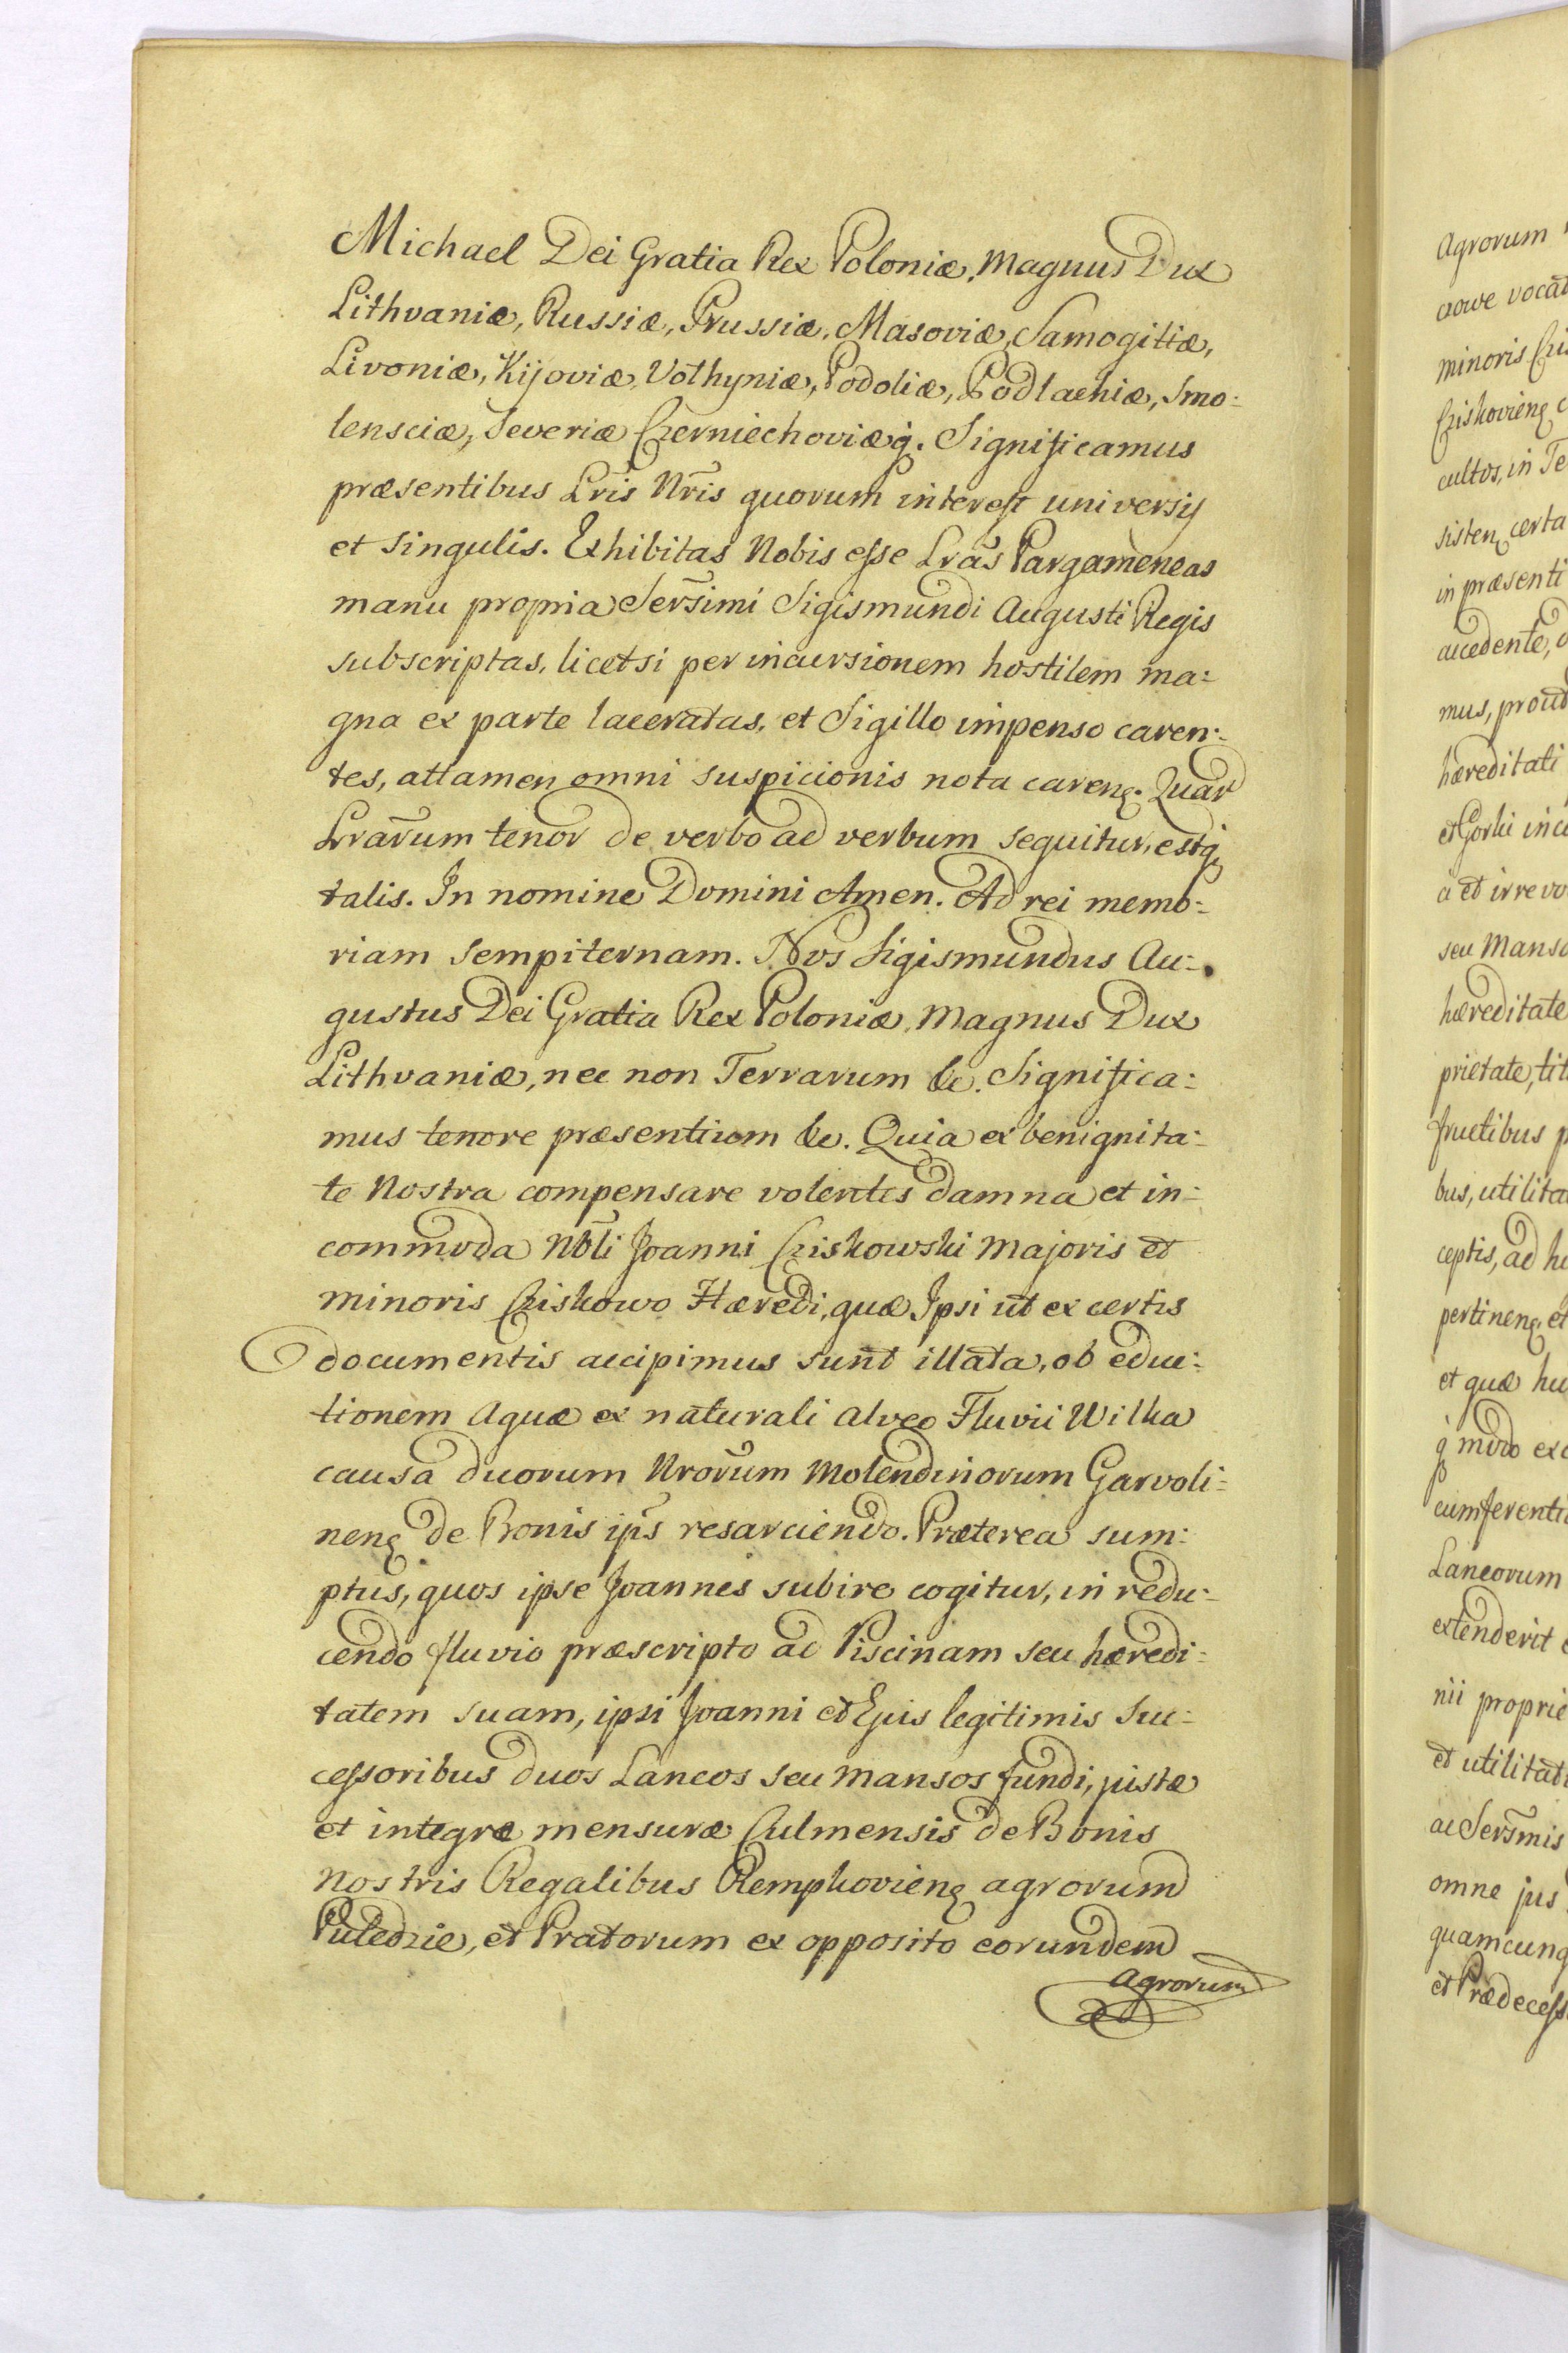 Michael Dei Gratia Rex Poloniæ, Magnus Dux
Lithvaniæ, Russiæ, Prussiæ, Masoviæ, Samogitiæ,
Livoniæ, Kijoviæ, Volhyniæ, Podoliæ, Podlachiæ, Smo:
lensciæ, Severiæ Czerniechoviæq. Significamus
præsentibus Lris Nris quorum interest universis
et singulis. Exhibitas Nobis esse Lras Pargameneas
manu propria Sersimi Sigismundi Augusti Regis
subscriptas, licetsi per incursionem hostilem ma:
gna ex parte laceratas, et Sigillo impenso caren:
tes, attamen omni suspicionis nota careng. Quar
Lrarum tenor de verbo ad verbum sequitur, estq
talis. In nomine Domini Amen. Ad rei memo:
riam sempiternam. Nos Sigismundus Au:
gustus Dei Gratia Rex Poloniæ, Magnus Dux
Lithvaniæ, nec non Terrarum &c. Significa:
mus tenore præsentium &c. Quia ex benignita:
te Nostra compensare volentes damna et in:
commoda Nbli Joanni Cziskowski Majoris et
minoris Cziskowo Hæredi, quæ Ipsi ut ex certis
documentis accipimus sunt illata, ob educ:
tionem Aquæ ex naturali alveo Fluvii Wilka
causa duorum Nrorum Molendinorum Garvoli:
neng de Bonis ips resarciendo. Præterea sum:
ptus, quos ipse Joannes subire cogitur, in redu:
cendo fluvio præscripto ad Piscinam seu hæredi:
tatem suam, ipsi Joanni et Ejus legitimis Suc:
cessoribus duos Laneos seu Mansos fundi, justæ
et integræ mensuræ Culmensis de Bonis
Nostris Regalibus Rempkovieng agrorum
Puledzie, et Pratorum ex opposito eorundem
agrorum
Agrorum
cowe vocat
minoris
Cziskovieng
cultos, in Te
sisteng certa
in præsenti
accedente,
mus, proud
hæreditati
et Gorki in
a et irrevo
seu Manso
hæreditate
prietate, tit
fructibus p
bus, utilita
ceptis, ad h
pertineng, et
et quæ hu
q modo exc
cumferenti
Laneorum
extenderit
nii proprie
et utilitat
ac Sersmis
omne jus
quamcunq
et Prædecess